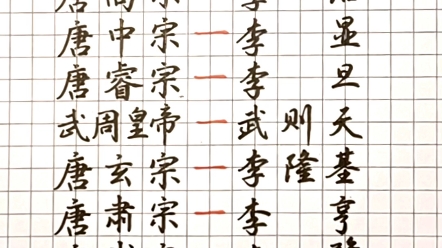 唐中宗一李显
唐睿宗一李旦
武周皇帝一武则天
唐玄宗一李隆基
唐肃宗一李亨